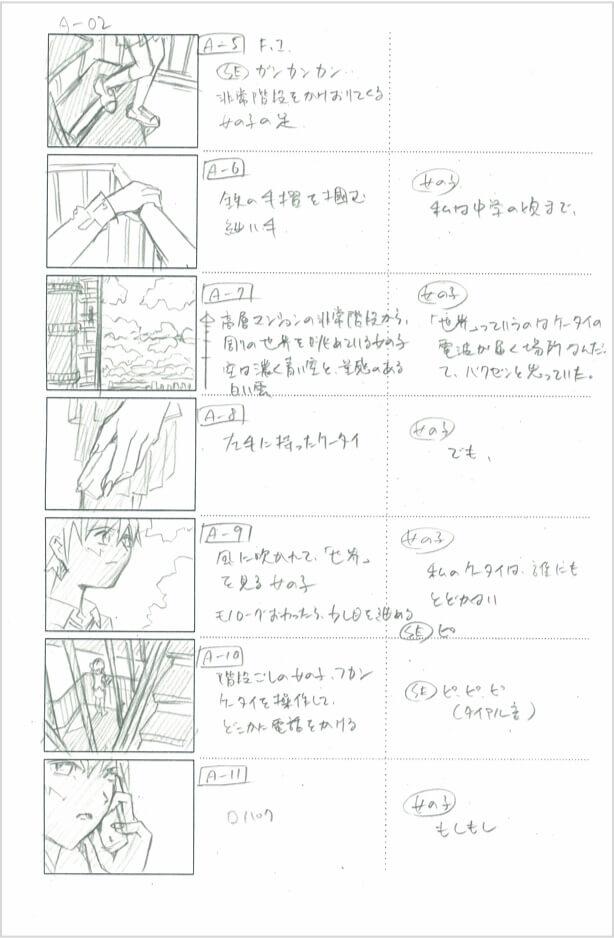 A-02
A-5 F.I.
SE ガンカンカン…
非常階段をかけおりてくる
女の子の足
A-6
鉄の手摺を掴む
細い手
女の子
私は中学の頃まで、
A-7
高層マンションの非常階段から、
周りの世界を眺めている女の子
空は濃く青い空と、量感のある
白い雲
女の子
「世界」っていうのはケータイの
電波が届く場所なんだっ
て、バクゼンと思っていた。
A-8
左手に持ったケータイ
女の子
でも、
A-9
風に吹かれて、「世界」
を見る女の子
モノローグおわったら、少し目を細める
女の子
私のケータイは、誰にも
とどかない
SE ピ
A-10
階段ごしの女の子、フカン
ケータイを操作して、
どこかに電話をかける
SE ピ、ピ、ピ
(ダイヤル音)
A-11
女の子
もしもし